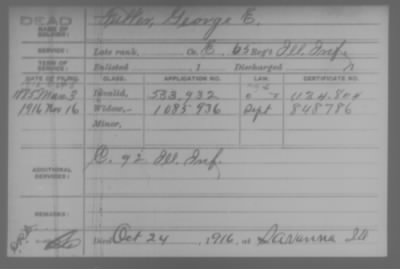 DEAD
NAME OF SOLDIER: George E.
SERVICE: Late rank, Co. E, 65 Reg't Ill. Inf.
TERM OF SERVICE: Enlisted , 1 Discharged , 1
DATE OF FILING. CLASS. APPLICATION NO. LAW. CERTIFICATE NO.
1885 Mar 3 Invalid, 533,932
1916 Nov 16 Widow, 1085,936 Sept 848786
Minor,
ADDITIONAL SERVICES: C. 92 Ill. Inf.
REMARKS:
Died Oct 24, 1916, at Savanna Ill